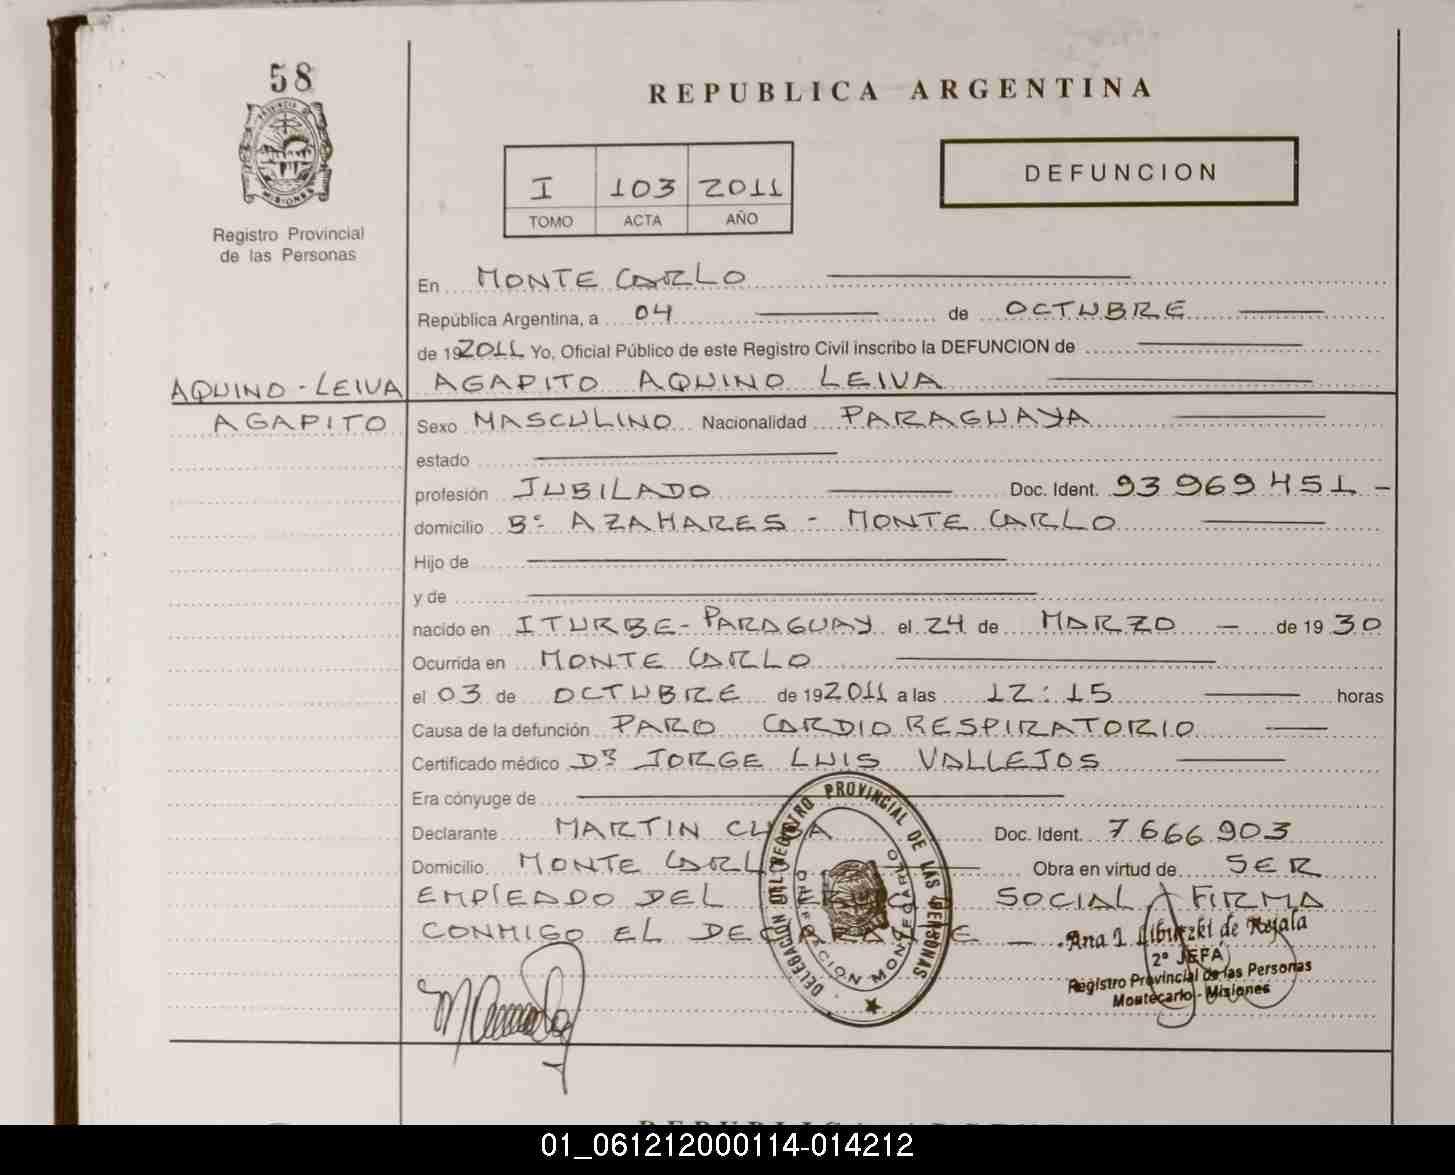 58
PROVINCIA DE
MISIONES
Registro Provincial
de las Personas
REPUBLICA ARGENTINA
I 103 2011
TOMO ACTA AÑO
DEFUNCION
En MONTE CARLO
República Argentina, a 04 de OCTUBRE
de 192011 Yo, Oficial Público de este Registro Civil inscribo la DEFUNCION de
AQUINO - LEIVA AGAPITO AQUINO LEIVA
AGAPITO Sexo MASCULINO Nacionalidad PARAGUAYA
estado
profesión JUBILADO Doc. Ident. 93 969 451 -
domicilio Bº AZAHARES - MONTE CARLO
Hijo de
y de
nacido en ITURBE - PARAGUAY el 24 de MARZO - de 19 30
Ocurrida en MONTE CARLO
el 03 de OCTUBRE de 192011 a las 12:15 horas
Causa de la defunción PARO CARDIO RESPIRATORIO
Certificado médico Dr JORGE LUIS VALLEJOS
Era cónyuge de
Declarante MARTIN Doc. Ident. 7666903
Domicilio MONTE CARLO Obra en virtud de SER
EMPLEADO DEL SOCIAL FIRMA
CONMIGO EL DECLARANTE -
DELEGACIÓN DEL REGISTRO PROVINCIAL DE LAS PERSONAS
MONTECARLO
Ana I. de
2º JEFA
Registro Provincial de las Personas
Montecarlo - Misiones
01_061212000114-014212